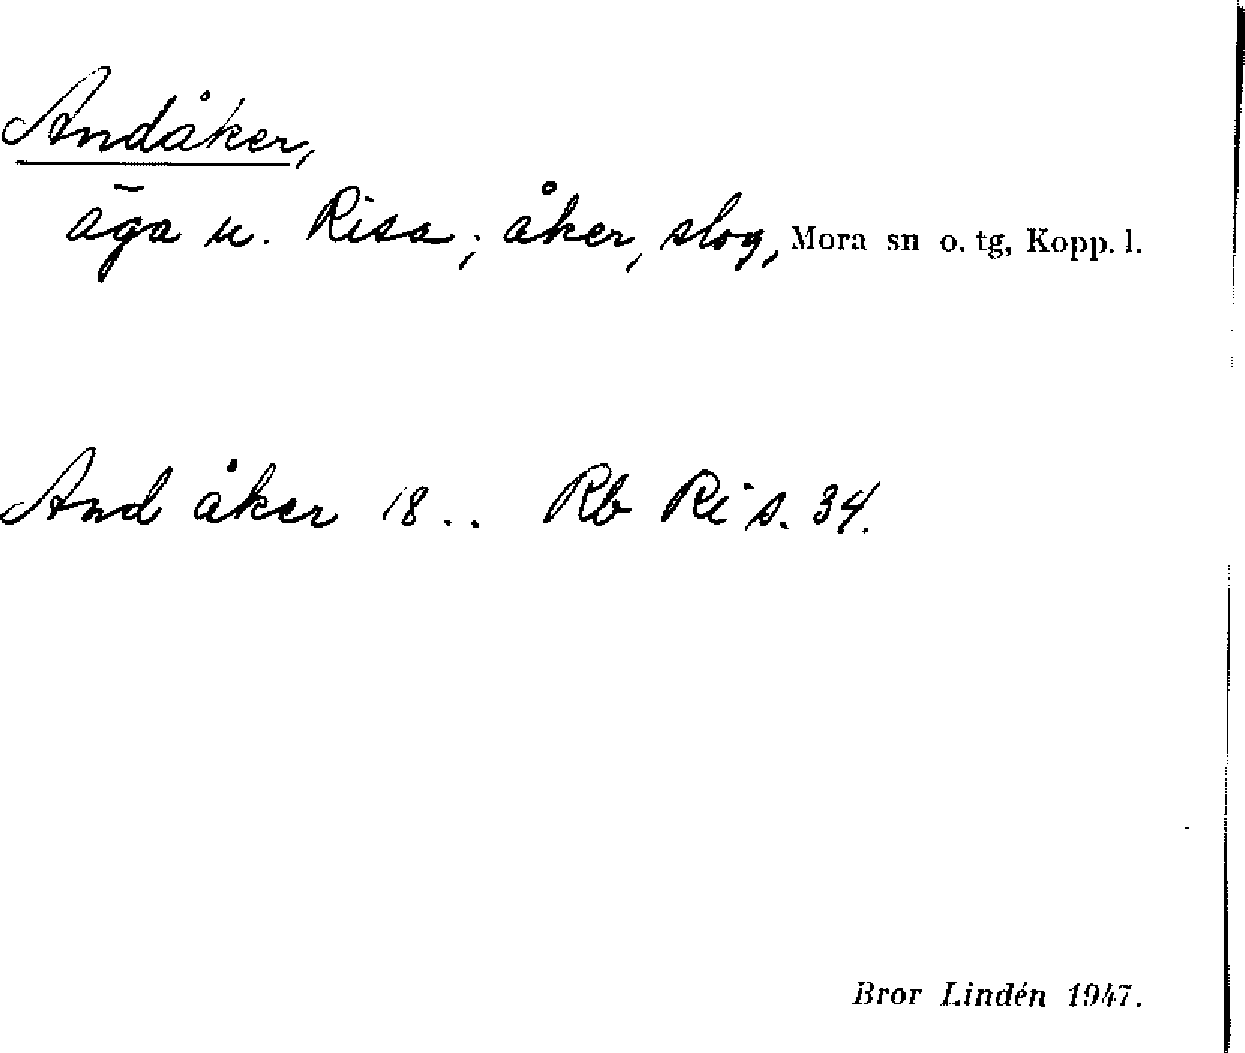 Andåker,
äga u. Risa; åker, slog, Mora sn o. tg, Kopp. l.
And åker 18.. Rb Ri s. 34.
Bror Lindén 1947.